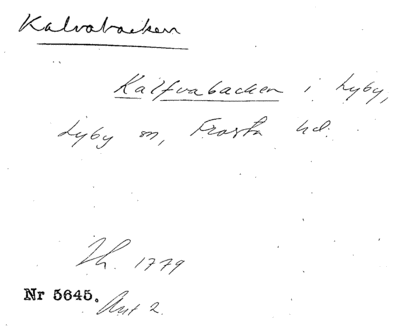 Kalvabacken
Kalfvabacken i Lyby,
Lyby sn, Frosta hd.
Th. 1779
Nr 5645. Ant 2.